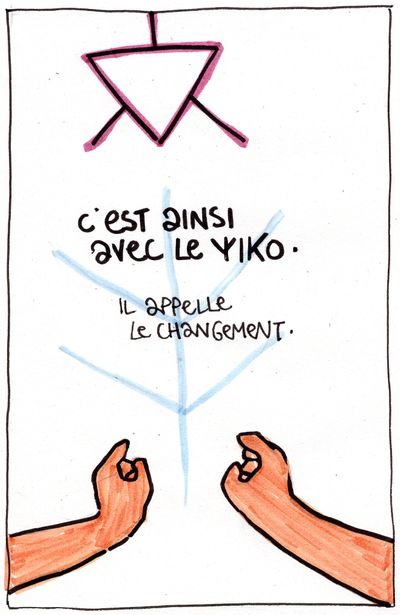 c'est ainsi
avec le YIKO.
il appelle
le changement.